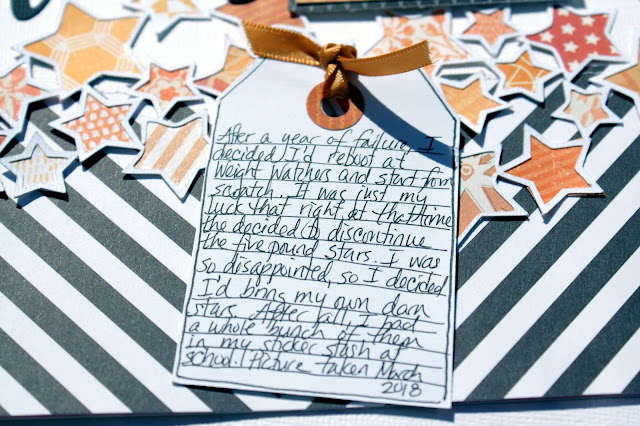 After a year of failure, I
decided I'd reboot at
weight watchers and start from
scratch. It was just my
luck that right at that time
the decided to discontinue
the five pound stars. I was
so disappointed, so I decided
I'd bring my own darn
stars. After all, I had
a whole bunch of them
in my sticker stash at
school. Picture taken March
2018